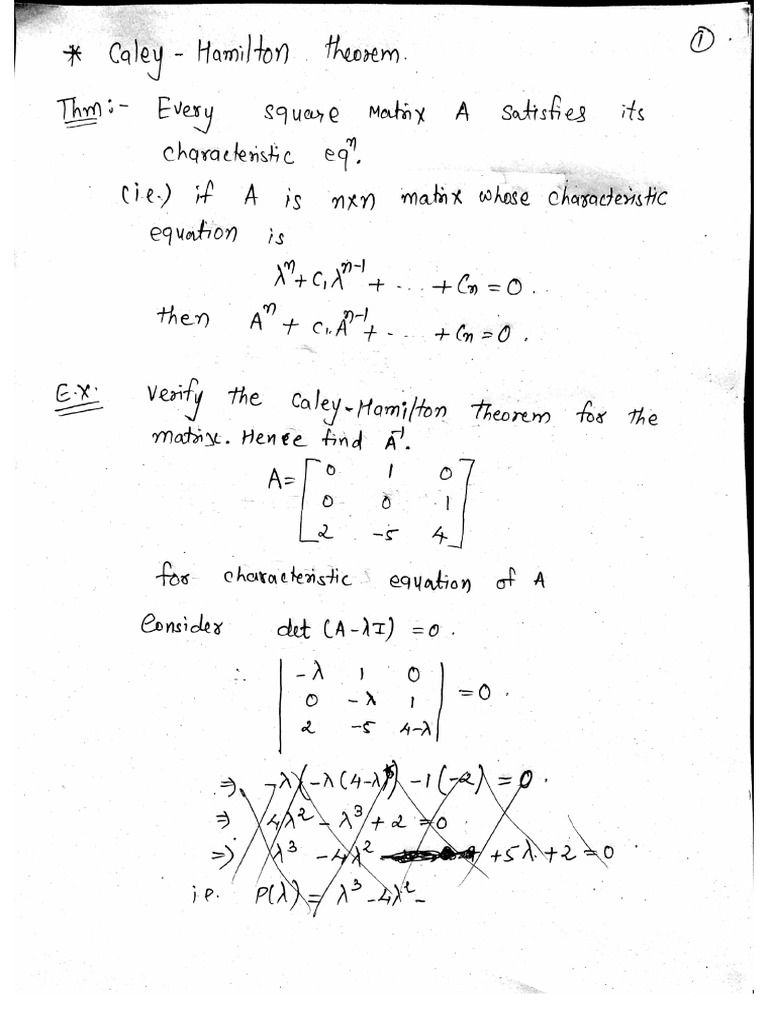 ①.
* Caley - Hamilton theorem.
Thm:- Every square matrix A satisfies its
characteristic eqⁿ.
(i.e.) if A is n×n matrix whose characteristic
equation is
λⁿ + C₁λⁿ⁻¹ + ... + Cₙ = 0.
then Aⁿ + C₁.Aⁿ⁻¹ + ... + Cₙ = 0.
E.X. Verify the Caley-Hamilton Theorem for the
matrix. Hence find A⁻¹.
A = [ 0 1 0
0 0 1
2 -5 4 ]
for characteristic equation of A
Consider det (A-λI) = 0.
∴ | -λ 1 0 |
| 0 -λ 1 | = 0.
| 2 -5 4-λ |
⇒ -λ(-λ(4-λ)) -1(-2) = 0.
⇒ 4λ² - λ³ + 2 = 0.
⇒ λ³ - 4λ² +5λ + 2 = 0
i.e. P(λ) = λ³ - 4λ² -